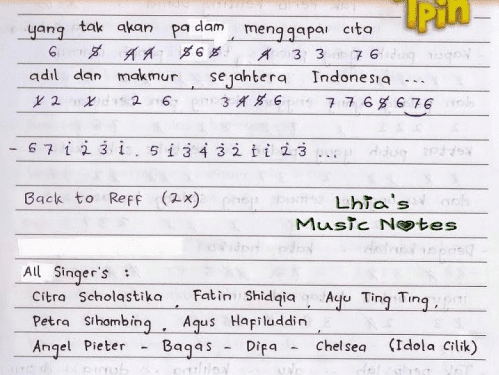 ipin
yang tak akan padam, menggapai cita
6 5̸ 4̸ 4̸ 5̸ 6 5̸ 4̸ 3 3 7 6
adil dan makmur, sejahtera Indonesia ...
1̸ 2 1̸ 2 6 3 4̸ 5̸ 6 7 7 6 5̸ 6 7 6
- 6 7 i̇ 2̇ 3̇ i̇ . 5 i̇ 3̇ 4̇ 3̇ 2̇ i̇ i̇ 2̇ 3̇ ...
Back to Reff (2x)
Lhia's
Music Notes
All Singer's :
Citra Scholastika, Fatin Shidqia, Ayu Ting Ting,
Petra Sihombing, Agus Hafiluddin,
Angel Pieter - Bagas - Difa - Chelsea (Idola Cilik)